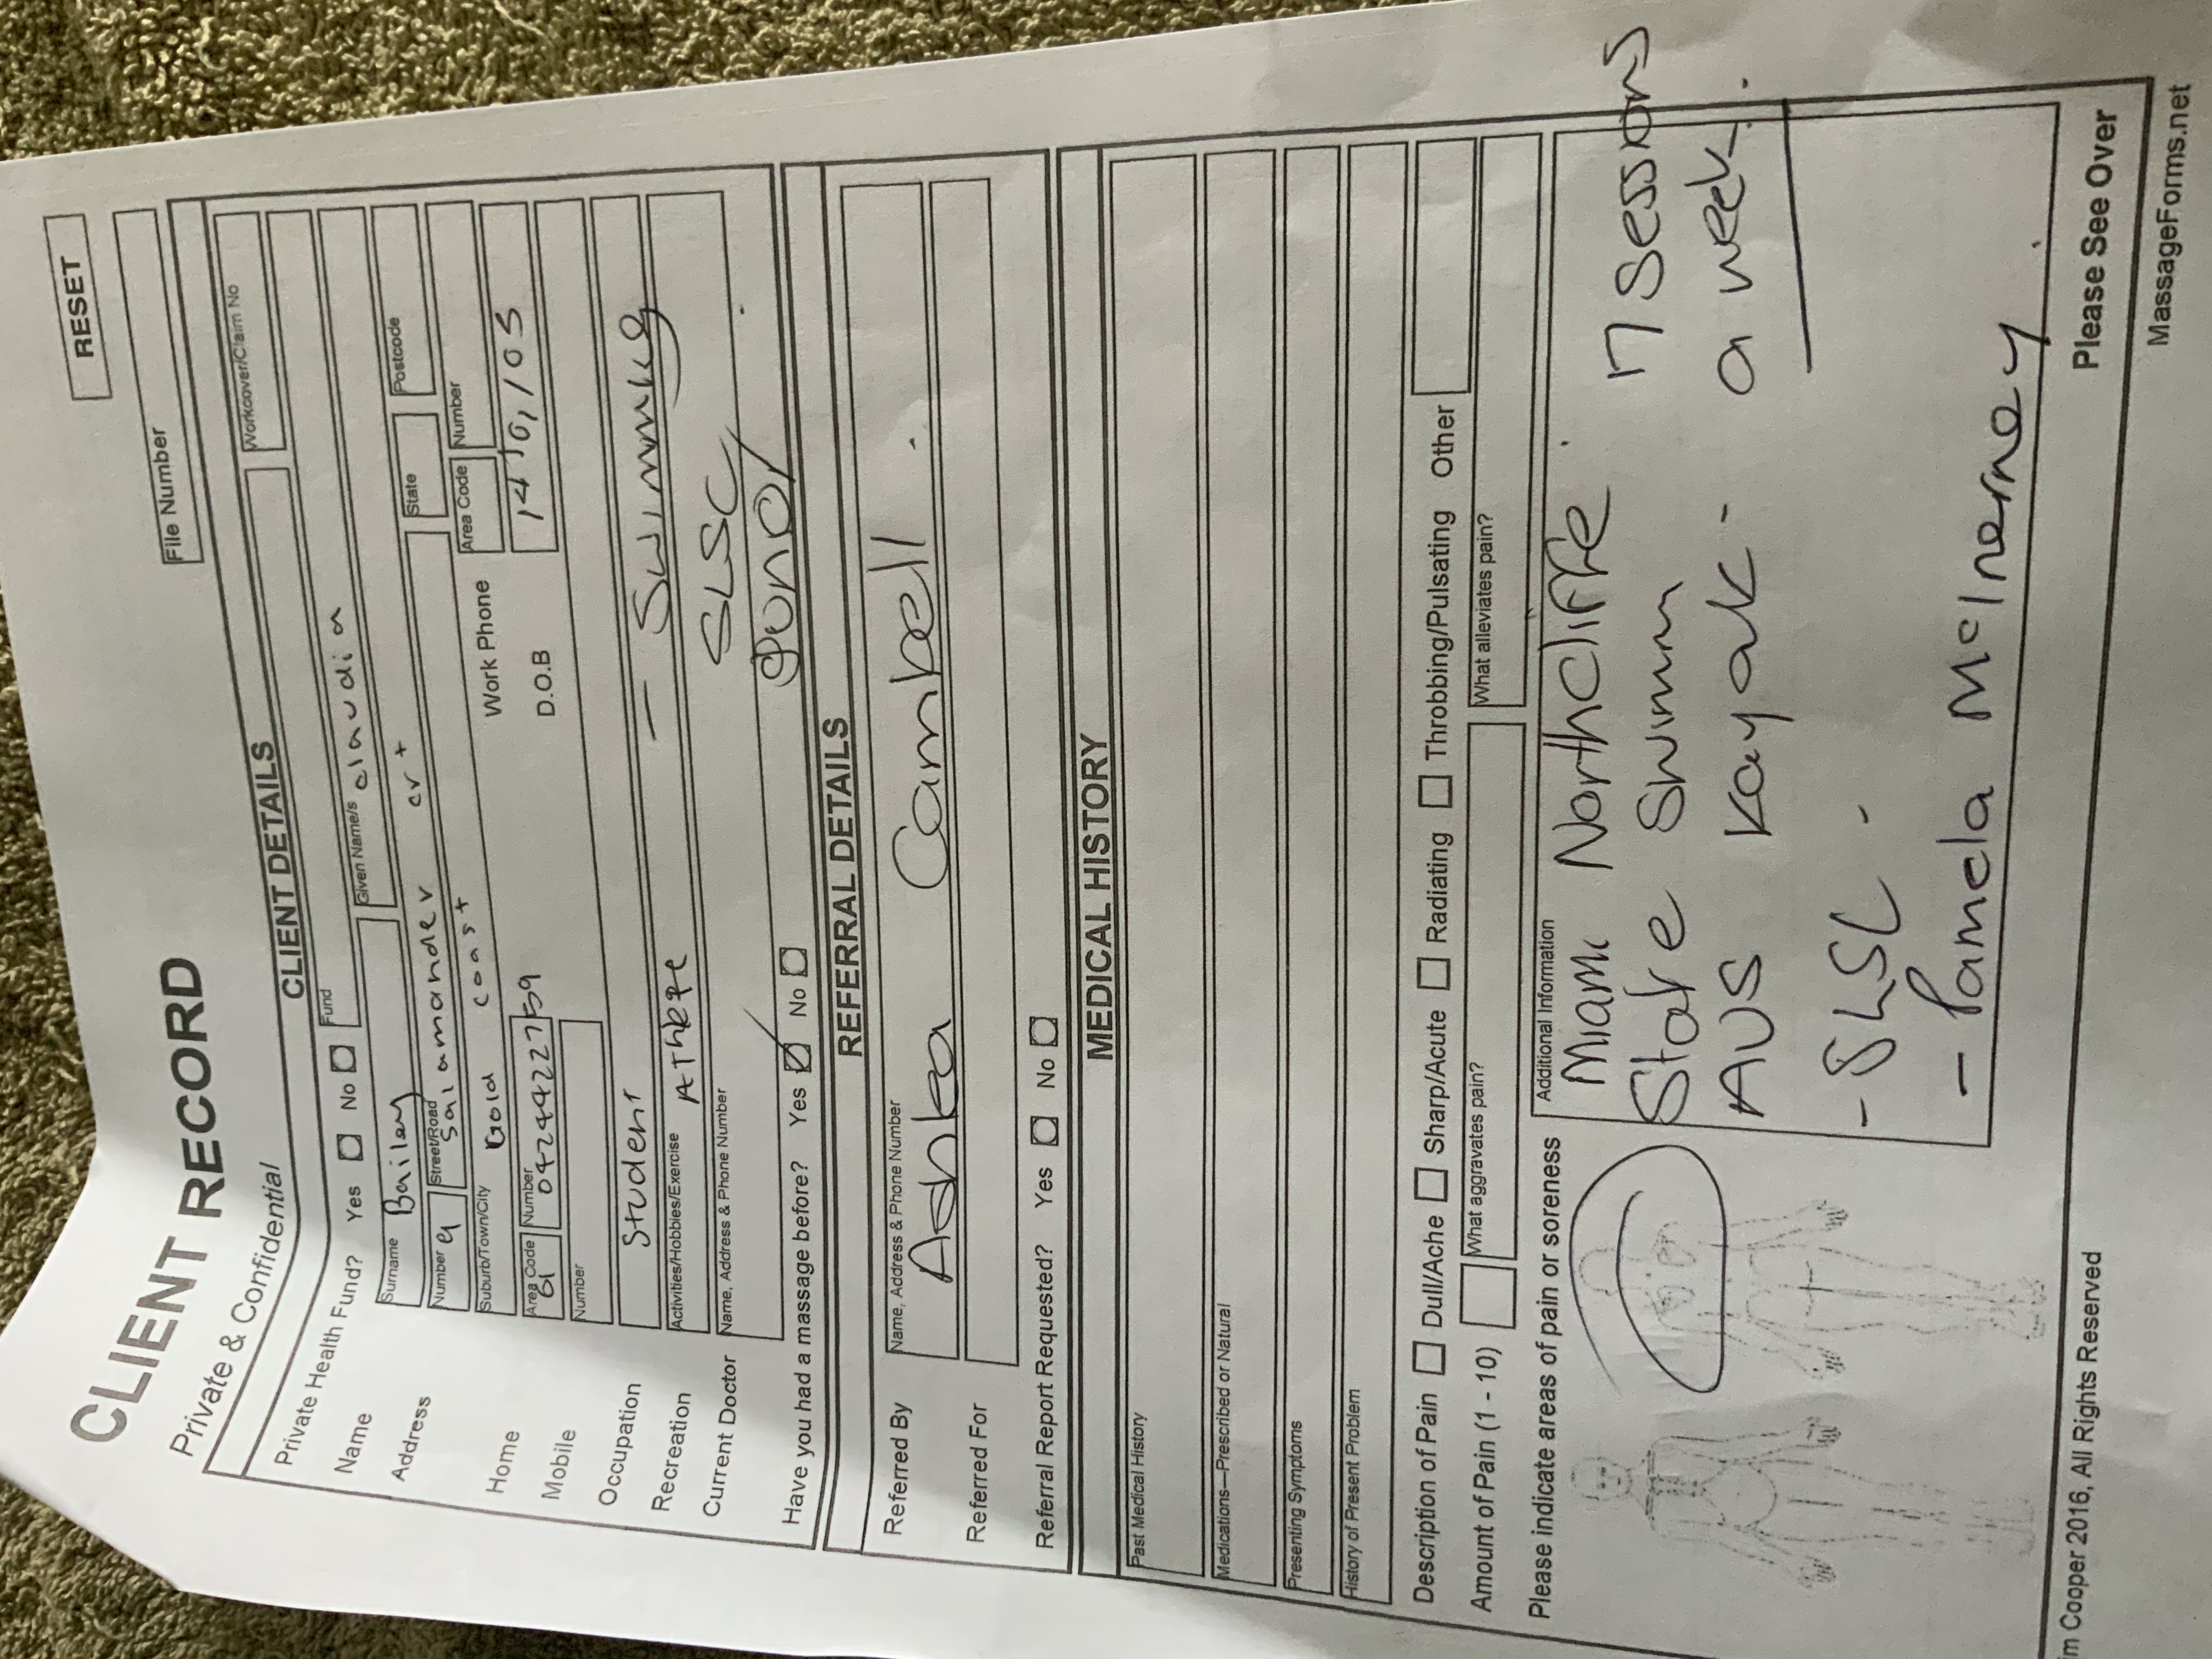 RESET
CLIENT RECORD
Private & Confidential
File Number
CLIENT DETAILS
Private Health Fund? Yes No Fund Workcover/Claim No
Name Surname Bailey Given Name/s claudia
Address Number Street/Road salamander crt
Suburb/Town/City Gold coast State Postcode
Home Area Code Number 0424442759 Work Phone Area Code Number
Mobile Number D.O.B
Occupation Student
Recreation Activities/Hobbies/Exercise AThlete - Swimming
Current Doctor Name, Address & Phone Number SLSC
Have you had a massage before? Yes No
REFERRAL DETAILS
Referred By Name, Address & Phone Number Cambell.
Referred For
Referral Report Requested? Yes No
MEDICAL HISTORY
Past Medical History
Medications—Prescribed or Natural
Presenting Symptoms
History of Present Problem
Description of Pain Dull/Ache Sharp/Acute Radiating Throbbing/Pulsating Other
Amount of Pain (1 - 10) What aggravates pain? What alleviates pain?
Please indicate areas of pain or soreness Additional Information
Miami Northcliffe. sessions
State Swimm a week.
AUS Kayak -
- SLSC -
- Pamela McInerney.
Please See Over
m Cooper 2016, All Rights Reserved
MassageForms.net